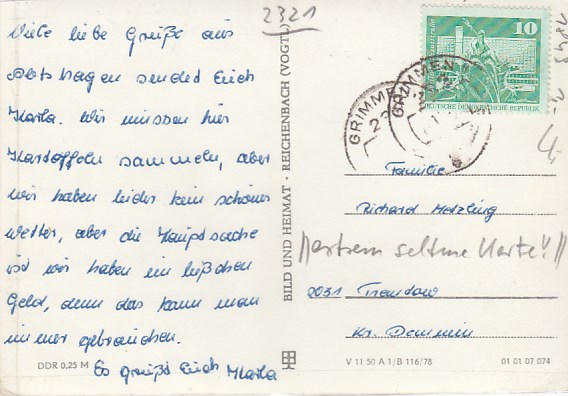 Viele liebe Grüße aus
sendet Euch
Marla. Wir müssen hier
Kartoffeln sammeln, aber
wir haben leider kein schönes
Wetter, aber die Hauptsache
ist wir haben ein bißchen
Geld, denn das kann man
immer gebrauchen.
Es grüßt Euch Marla
DDR 0,25 M
2321
BILD UND HEIMAT · REICHENBACH (VOGTL)
10
DEUTSCHE DEMOKRATISCHE REPUBLIK
GRIMMEN
GRIMMEN
Familie
Richard
extrem seltene Karte!!
2031
Kr. Demmin
V 11 50 A 1/B 116/78
01 01 07 074